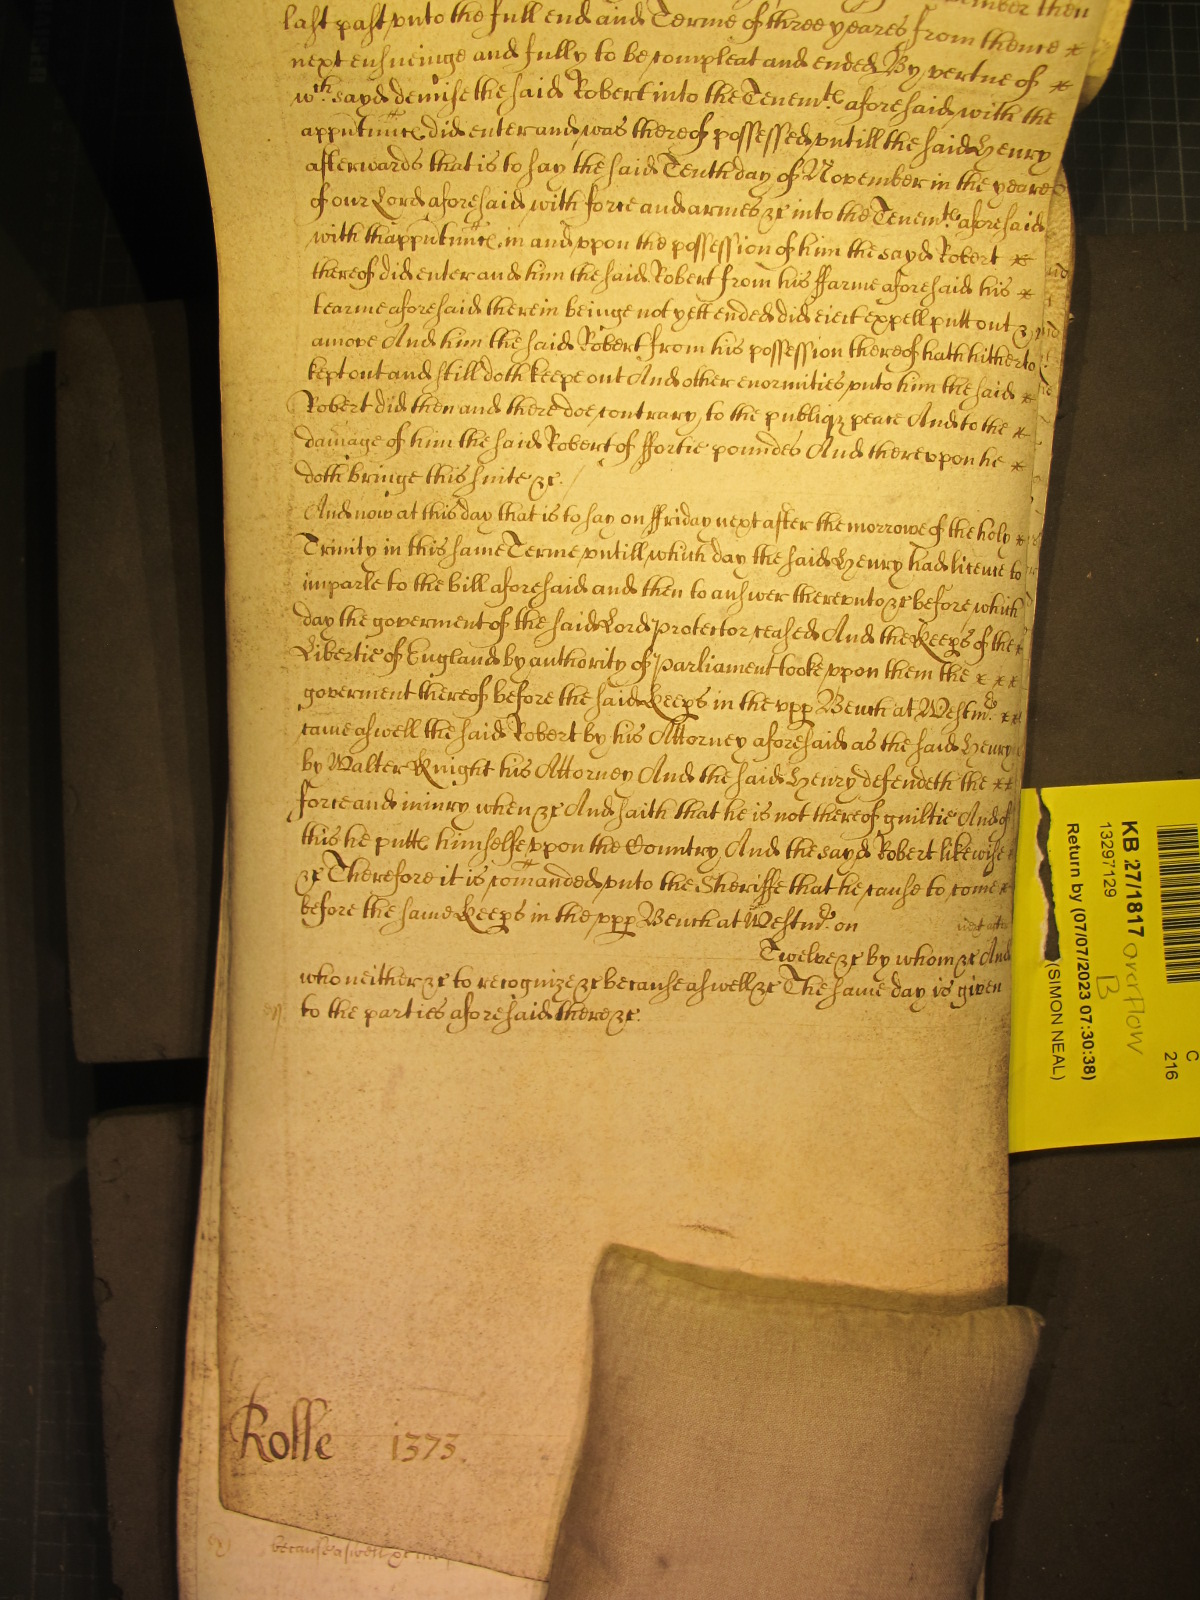 ember then
last past vnto the full end and Terme of three yeares from thence *
next ensueinge and fully to be compleat and ended By vertue of *
wch sayd demise the said Robert into the Tenemts aforesaid with the
apputnnces did enter and was thereof possessed vntill the said Henry
afterwards that is to say the said Tenth day of November in the yeare
of our Lord aforesaid with force and armes &c into the Tenemts aforesaid
with thapputnnces in and vpon the possession of him the sayd Robert *
thereof did enter and him the said Robert from his ffarme aforesaid his *
tearme aforesaid therein beinge not yett ended did eiect expell putt out &
amove And him the said Robert from his possession thereof hath hitherto
kept out and still doth keepe out And other enormities vnto him the said *
Robert did then and there doe contrary to the publiq peace And to the *
damage of him the said Robert of ffortie poundes And therevpon he *
doth bringe this suite &c.
And now at this day that is to say on ffriday next after the morrowe of the holy *
Trinity in this same Terme vntill which day the said Henry had licence to
imparle to the bill aforesaid and then to answer therevnto &c before which
day the goverment of the said Lord protector ceased And the Keeps of the *
Libertie of England by authority of parliament tooke vpon them the * * *
goverment thereof before the said Keeps in the vpp Bench at Westmr. * *
came aswell the said Robert by his Attorney aforesaid as the said Henry
by Walter Knight his Attorney And the said Henry defendeth the * *
force and iniury when &c And saith that he is not thereof guiltie And of
this he putts himselfe vpon the Country And the sayd Robert likewise
&c Therefore it is comanded vnto the Sheriffe that he cause to come *
before the same Keeps in the vpp Bench at Westmr. on
Twelve &c by whom &c And
who neither &c to recognize &c because aswell &c The same day is given
to the parties aforesaid there &c.
Rolle 1373.
because aswell &c
KB 27/1817
13297129
Return by (07/07/2023 07:30:38)
(SIMON NEAL)
overflow
B
C
216